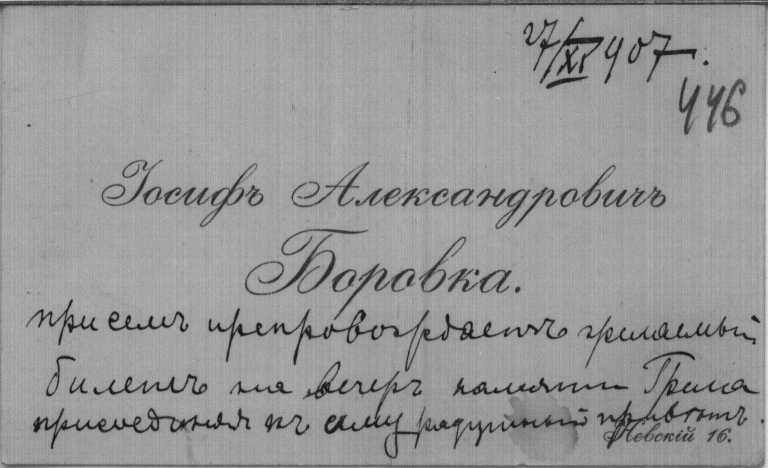 27/XI 907.
446
Іосифъ Александровичъ
Боровка.
при семъ препровождаетъ желаемый
билетъ на вечеръ памяти Грига
присоединяя къ сему радушный привѣтъ.
Невскій 16.